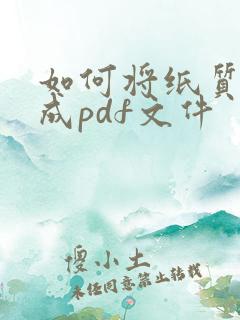 如何将纸质
成pdf文件
傻小土
未经同意禁止转载